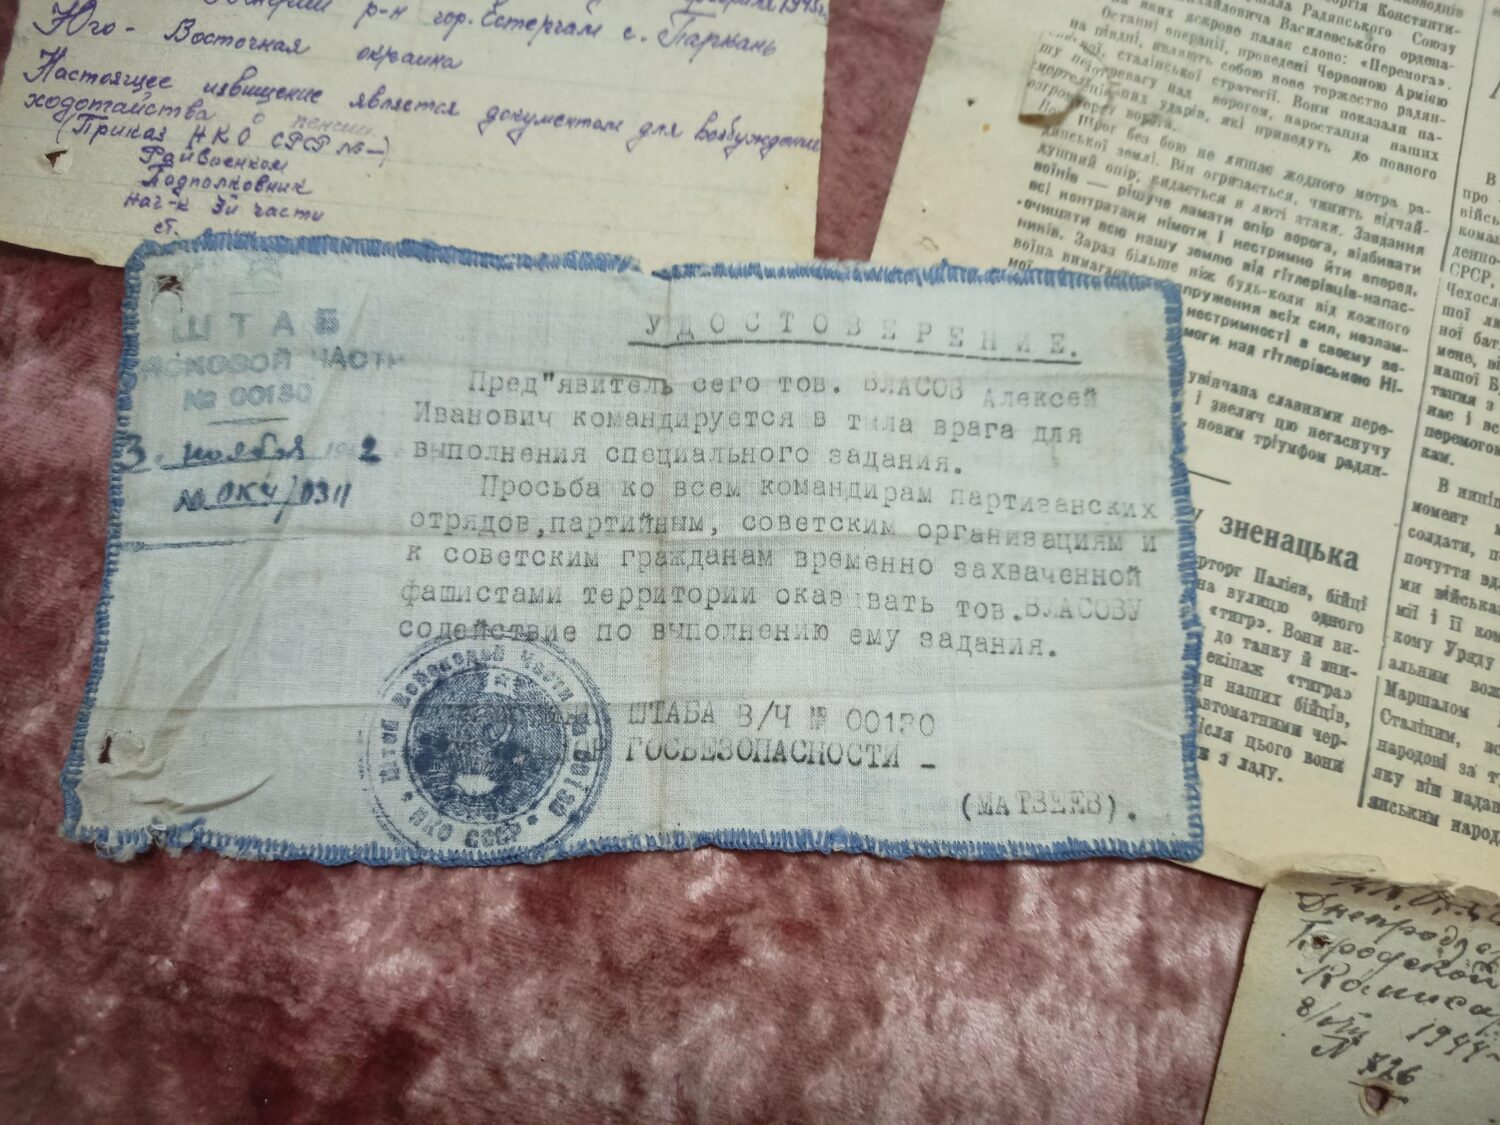 р-н гор. Естергам с. Паркань
Юго-Восточная окраина
Настоящее извищение является документом для возбуждении
ходотайства о пенсии
(Приказ НКО СРСР №—)
Райвоенком
Подполковник
Нач-к 3й части
ст.
ШТАБ
ЧАСТИ
№ 00130
3. ноября 2
№ ОКЧ/0311
УДОСТОВЕРЕНИЕ.
Пред"явитель сего тов. ВЛАСОВ Алексей
Иванович командируется в тыла врага для
выполнения специального задания.
Просьба ко всем командирам партизанских
отрядов, партийным, советским организациям и
к советским гражданам временно захваченной
фашистами территории оказывать тов. ВЛАСОВУ
содействие по выполнению ему задания.
ШТАБА В/Ч № 00130
ГОСБЕЗОПАСНОСТИ –
(МАТВЕЕВ).
Войсковой Части № 00130
СССР
Радянського Союзу
Михайловича Василевського ордена-
яких яскраво палає слово: «Перемога».
Останні операції, проведені Червоною Армією
на півдні, являють собою нове торжество радян-
сталінської стратегії. Вони показали на-
шу перевагу над ворогом, наростання наших
ударів, які приведуть до повного
ворога.
Ворог без бою не лишає жодного метра ра-
дянської землі. Він огризається, чинить відчай-
душний опір, кидається в люті атаки. Завдання
воїнів — рішуче ламати опір ворога, відбивати
всі контратаки німоти і нестримно йти вперед,
очищати всю нашу землю від гітлерівців-напас-
ників. Зараз більше ніж будь-коли від кожного
воїна вимагає
напруження всіх сил, незлам-
нестримності в своєму
над гітлерівською Ні-
увінчана славними пере-
і звелич цю негаснучу
новим тріумфом радян-
зненацька
Паліев, бійці
на вулицю одного
«тигр». Вони ви-
до танку й зни-
екіпаж «тигра»
наших бійців,
автоматними чер-
Після цього вони
з ладу.
В
про
війсь
кома
СРСР,
Чехосл
ної бат
мене, ві
нашої Б
тання з
нас і вс
перемогою
кам.
В нині
момент
солдати, п
почуття вд
ми війська
мії і її ком
кому Уряду
альним вож
Маршалом
Сталіним, вс
народові за т
яку він надав
янським народ
Городской
8/VIII 1944
N 726